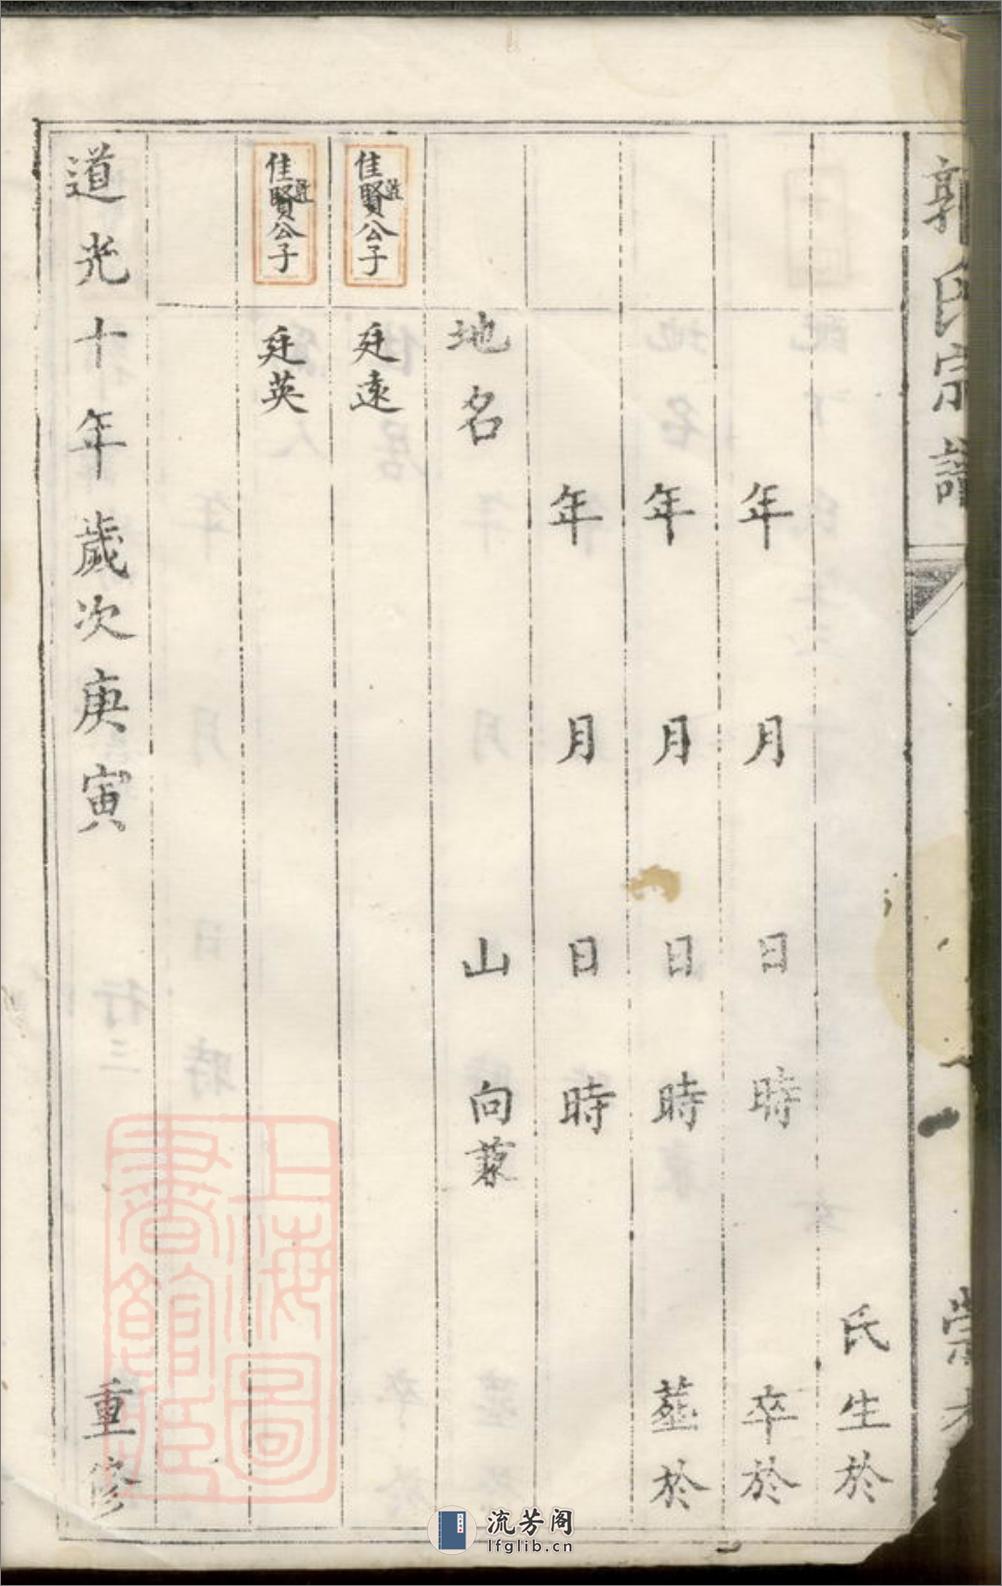 郭氏宗譜
崇本
氏生於
年月日時卒於
年月日時塟於
年月日時
地名山向
佳賢公子廷遠
佳賢公子廷英
道光十年歲次庚寅重修
上海圖書館藏
流芳阁
lfglib.cn